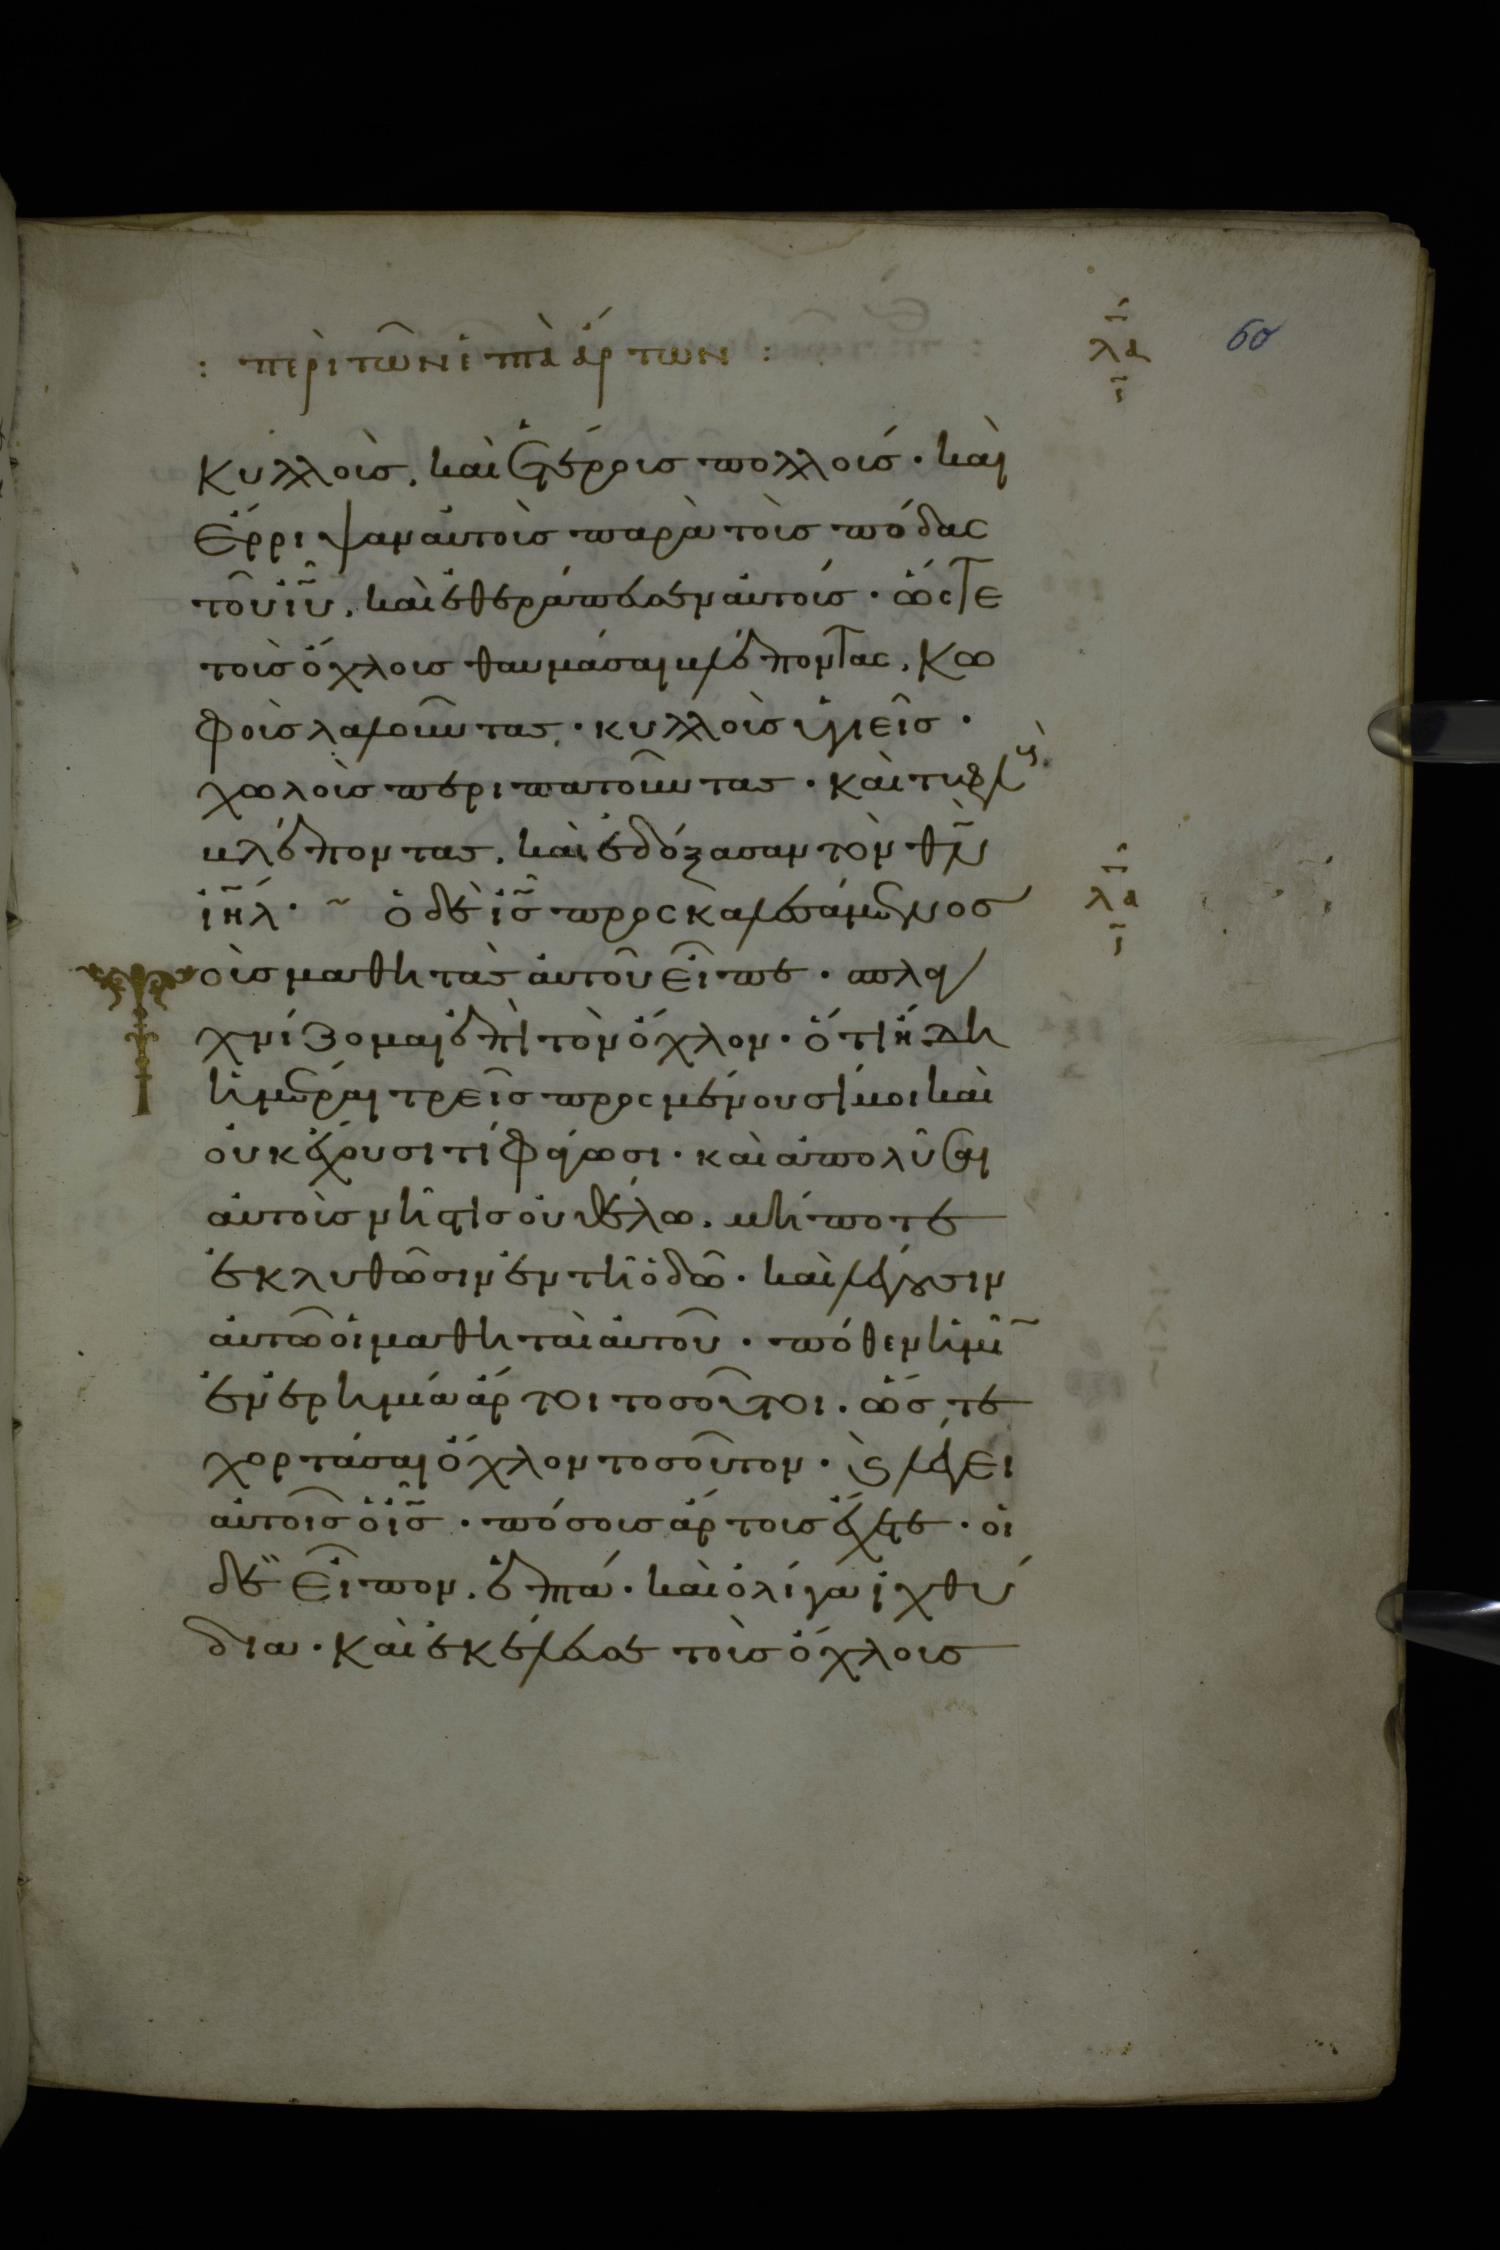 : περὶ τῶν ἑπτὰ ἄρτων :
60
κυλλοὺς, καὶ ἑτέρους πολλούς· καὶ
ἔρριψαν αὐτοὺς παρὰ τοὺς πόδας
τοῦ ἰῦ, καὶ ἐθεράπευσεν αὐτούς· ὥστε
τοὺς ὄχλους θαυμάσαι βλέποντας, κω
φοὺς λαλοῦντας· κυλλοὺς ὑγιεῖς·
χωλοὺς περιπατοῦντας· καὶ τυφλοὺς
βλέποντας, καὶ ἐδόξασαν τὸν θν̅
ιη̅λ· ~ ὁ δὲ ι̅ς̅ προσκαλεσάμενος
Τοὺς μαθητὰς αὐτοῦ εἶπε· σπλαγ
χνίζομαι ἐπὶ τὸν ὄχλον· ὅτι ἤδη
ἡμέραι τρεῖς προσμένουσί μοι καὶ
οὐκ ἔχουσι τί φάγωσι· καὶ ἀπολῦσαι
αὐτοὺς νήστις οὐ θέλω, μήποτε
ἐκλυθῶσιν ἐν τῇ ὁδῶ· καὶ λέγουσιν
αὐτῶ οἱ μαθηταὶ αὐτοῦ· πόθεν ἡμῖν
ἐν ἐρημία ἄρτοι τοσοῦτοι· ὥστε
χορτάσαι ὄχλον τοσοῦτον· ϗ λέγει
αὐτοῖς ὁ ι̅ς̅· πόσους ἄρτους ἔχετε· οἱ
δὲ εἶπον, ἑπτά· καὶ ὀλίγα ἰχθύ
δια· καὶ ἐκέλευσε τοῖς ὄχλοις